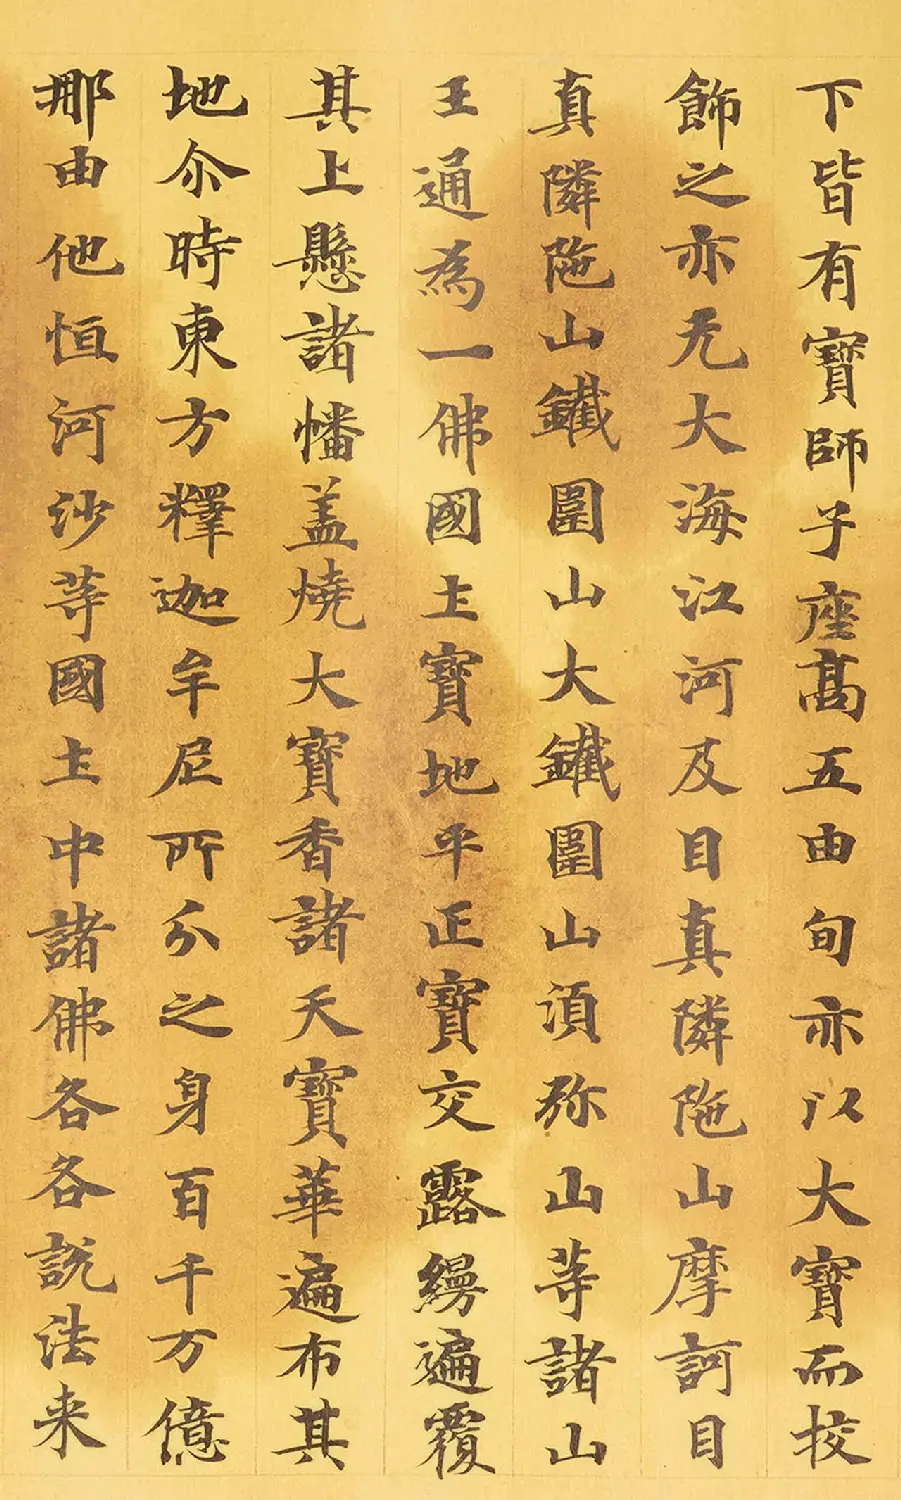 下皆有寶師子座高五由旬亦以大寶而挍
飾之亦无大海江河及目真隣陁山摩訶目
真隣陁山鐵圍山大鐵圍山須弥山等諸山
王通為一佛國土寶地平正寶交露縵遍覆
其上懸諸幡盖燒大寶香諸天寶華遍布其
地尒時東方釋迦牟尼所分之身百千万億
那由他恒河沙等國土中諸佛各各說法来